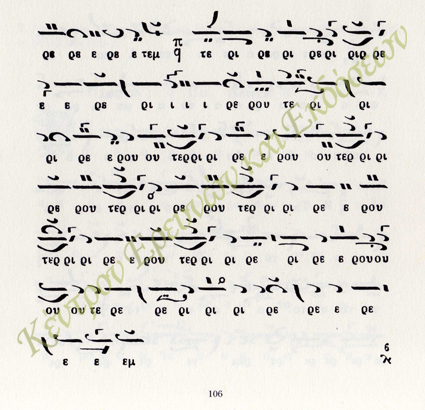 ρε ρε ε ρε ε τεμ π q τε ρι ρε ρι ρερι ριρι ρε
ε ε ρε ρι ι ι ι ρε ρου τε ρι ρι
ρι ρε ε ρου ου τερρι ρι ρε ε ρου ου τερ ρι ρι
ρε ρου τερ ρι ρι ρε ρου τερ ρι ρι ρε ε ρου
τερ ρι ρι ρε ε ρου τε ρι ρι ρι ρε ε ρου ου
ου ου τε ρε ρε ρι ρι ρι ρε ε ρε ε ρε
ε ε εμ
106
Κέντρον Ερευνών και Εκδόσεων